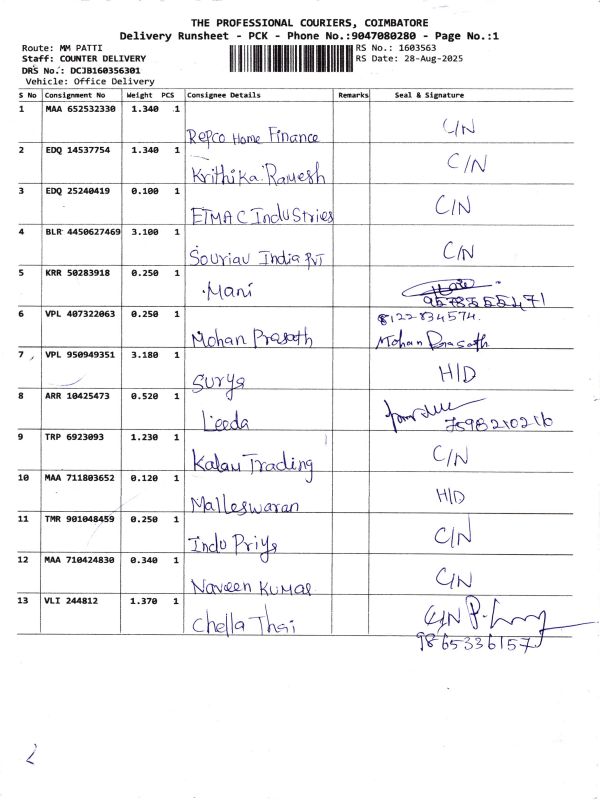 THE PROFESSIONAL COURIERS, COIMBATORE
Delivery Runsheet - PCK - Phone No.:9047080280 - Page No.:1
Route: MM PATTI RS No.: 1603563
Staff: COUNTER DELIVERY RS Date: 28-Aug-2025
DRS No.: DCJB160356301
Vehicle: Office Delivery
S No Consignment No Weight PCS Consignee Details Remarks Seal & Signature
1 MAA 652532330 1.340 1 Repco Home Finance C/N
2 EDQ 14537754 1.340 1 Krithika Ramesh C/N
3 EDQ 25240419 0.100 1 ETMAC Industries C/N
4 BLR 4450627469 3.100 1 Souriau India PVT C/N
5 KRR 50283918 0.250 1 Mani
6 VPL 407322063 0.250 1 Mohan Prasath 8122834574. Mohan Prasath
7 VPL 950949351 3.180 1 Surya H/D
8 ARR 10425473 0.520 1 Leeda 7598210216
9 TRP 6923093 1.230 1 Kalam Trading C/N
10 MAA 711803652 0.120 1 Malleswaran H/D
11 TMR 901048459 0.250 1 Indu Priya C/N
12 MAA 710424830 0.340 1 Naveen Kumar C/N
13 VLI 244812 1.370 1 Chella Thai C/N
9865336157